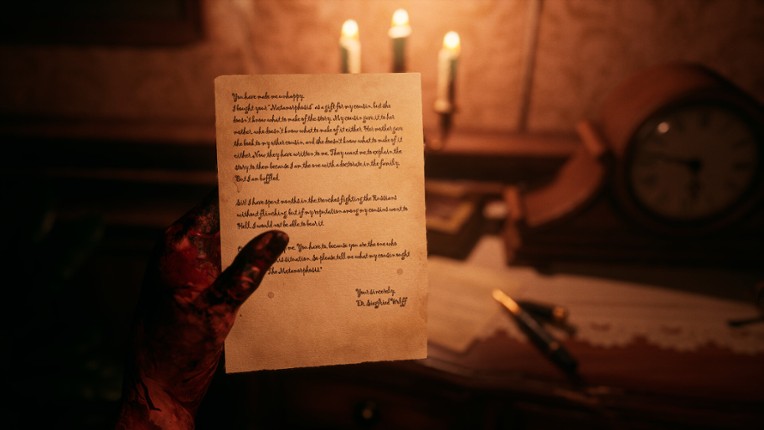 You have made me unhappy.
I bought your "Metamorphosis" as a gift for my cousin, but she
doesn't know what to make of the story. My cousin gave it to her
mother, who doesn't know what to make of it either. Her mother gave
the book to my other cousin, and she doesn't know what to make of it
either. Now they have written to me. They want me to explain the
story to them because I am the one with a doctorate in the family.
But I am baffled.
Sir! I have spent months in the trenches fighting the Russians
without flinching, but if my reputation among my cousins went to
Hell, I would not be able to bear it.
me. You have to, because you are the one who
situation. So please tell me what my cousin ought
the Metamorphosis"
Yours sincerely,
Dr. Siegfried Wolff